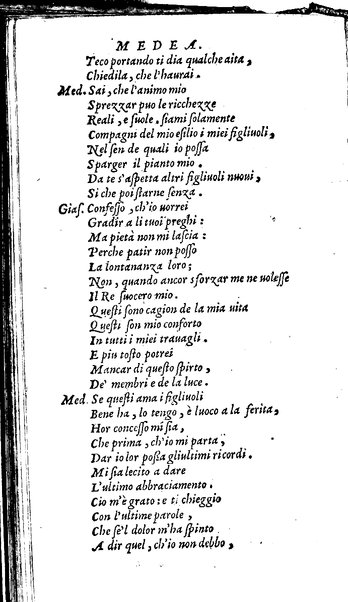 MEDEA.
Teco portando ti dia qualche aita,
Chiedila, che l'haurai.
Med. Sai, che l'animo mio
Sprezzar puo le ricchezze
Reali, e suole. siami solamente
Compagni del mio esilio i miei figliuoli,
Nel sen de quali io possa
Sparger il pianto mio.
Da te s'aspetta altri figliuoli nuoui,
Si che poi starne senza.
Gias. Confesso, ch'io uorrei
Gradir a li tuoi preghi:
Ma pietà non mi lascia:
Perche patir non posso
La lontananza loro;
Non, quando ancor sforzar me ne uolesse
Il Re suocero mio.
Questi sono cagion de la mia uita
Questi son mio conforto
In tutti i miei trauagli.
E piu tosto potrei
Mancar di questo spirto,
De' membri e de la luce.
Med. Se questi ama i figliuoli
Bene ha, lo tengo, è luoco a la ferita,
Hor concesso mi sia,
Che prima, ch'io mi parta,
Dar io lor possa gliultimi ricordi.
Mi sia lecito a dare
L'ultimo abbraciamento.
Cio m'è grato: e ti chieggio
Con l'ultime parole,
Che se'l dolor m'ha spinto
A dir quel, ch'io non debbo,